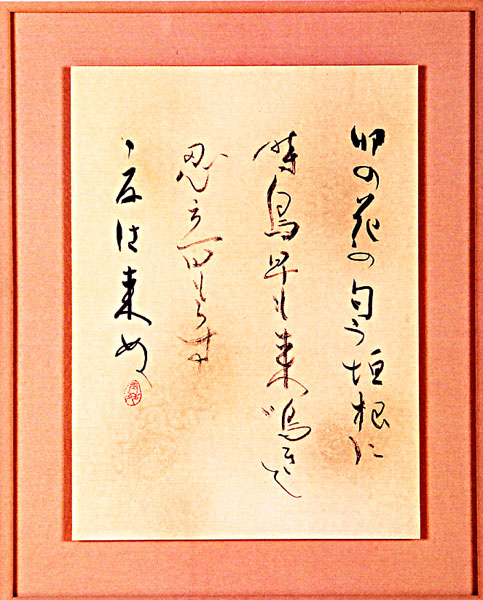 卯の花の匂う垣根に
時鳥早も来鳴きて
忍音もらす
夏は来ぬ